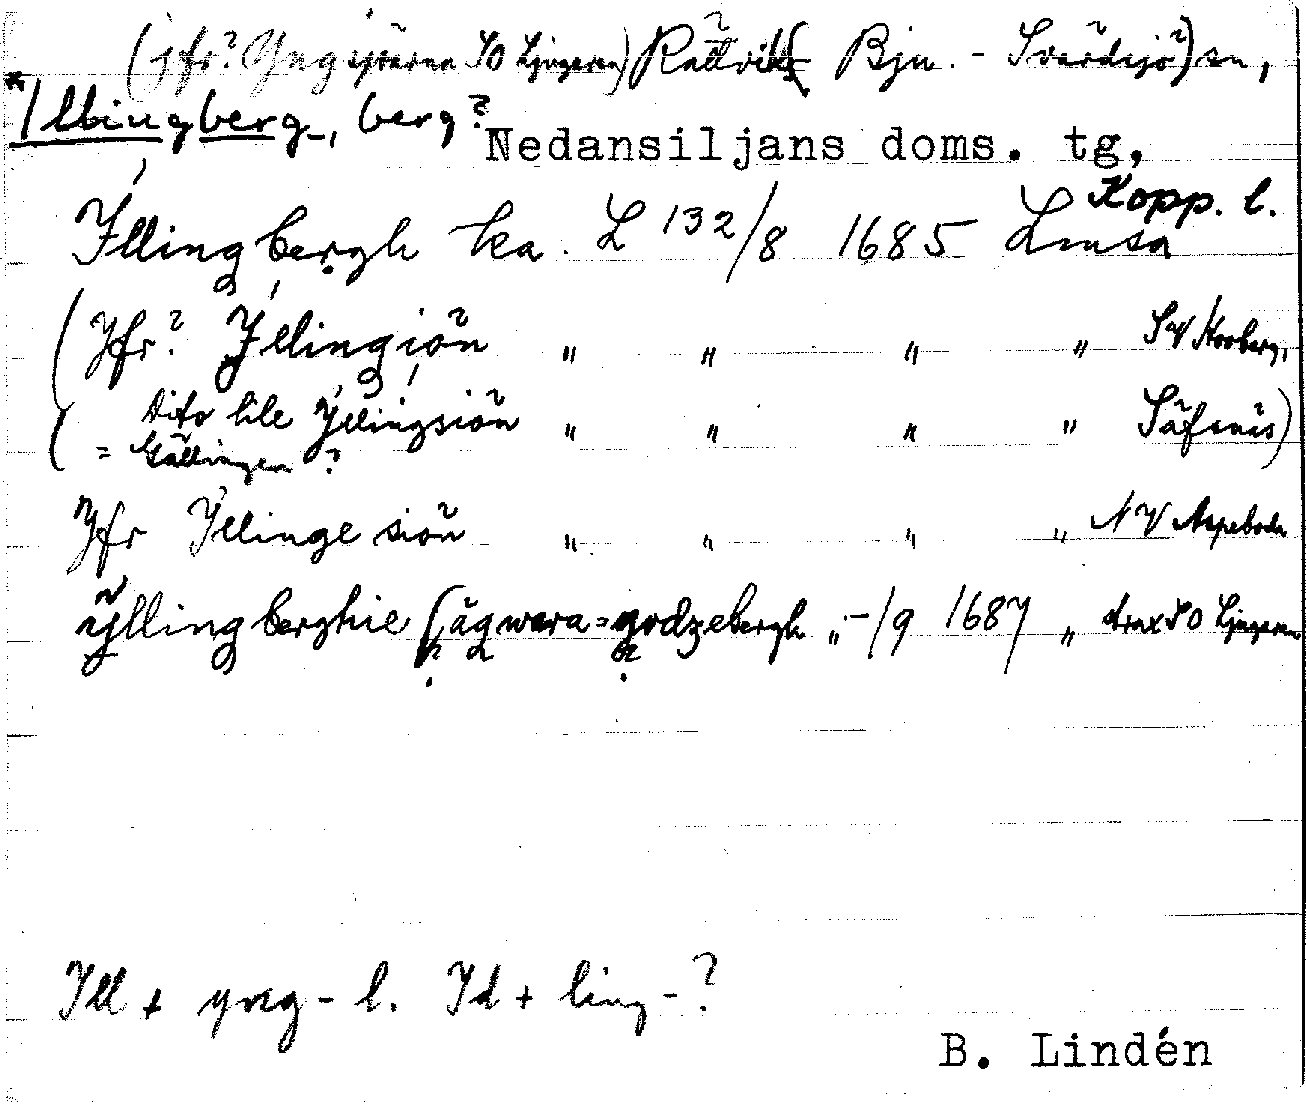 (jfr? Yngsjtärna SO Ljugaren) Rättvik ( Bju. - Svärdsjö?) sn,
*Illingberg-, berg? Nedansiljans doms. tg,
Kopp. l.
Yllingbergh ka. L 132/8 1685 Lmsa
(Jfr? Yllingiön " " " " SV Korberg,
(Dito lile Yllingsiön " " " " Säfsnäs)
= Gällingen?
Jfr Yllinge siön " " " " NV Aspeboda
ÿllingberghie (ägwara=godzebergh " -/9 1687 " strax SO Ljugaren
Ill + yng- l. Id + ling-?
B. Lindén